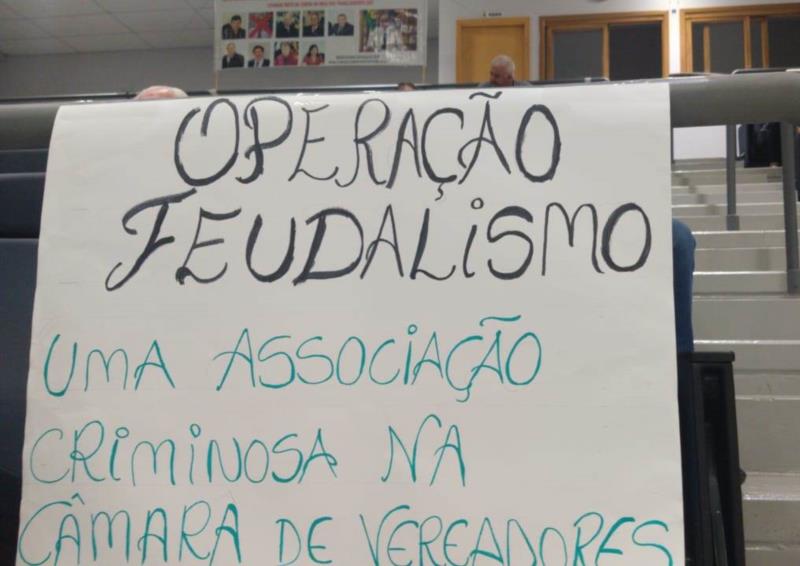 OPERAÇÃO
FEUDALISMO
UMA ASSOCIAÇÃO
CRIMINOSA NA
CÂMARA DE VEREADORES